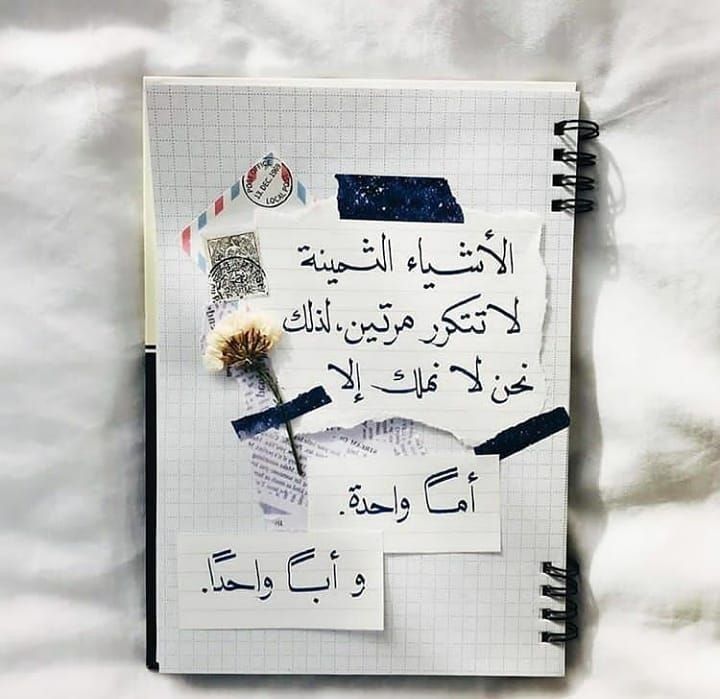 POST OFFICE
13. DEC. 1989
LOCAL POST
الأشياء الثمينة
لا تتكرر مرتين، لذلك
نحن لا نملك إلا
أماً واحدة.
و أباً واحدًا.